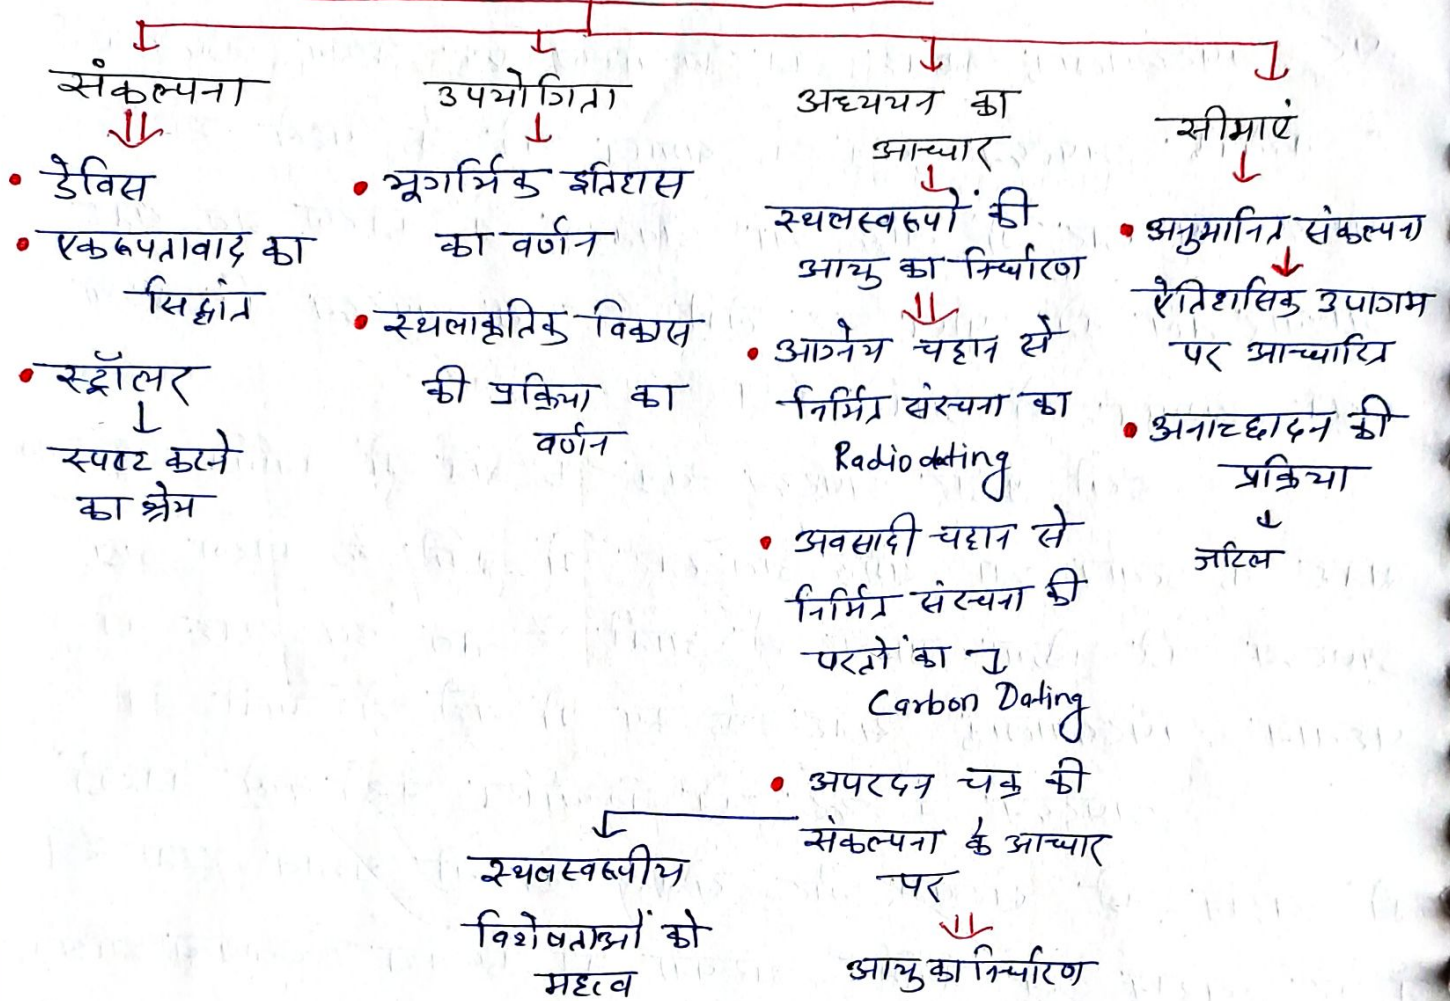 संकल्पना
डेविस
एकरूपतावाद का
सिद्धांत
स्ट्रॉलर
स्पष्ट करने
का श्रेय
उपयोगिता
भूगर्भिक इतिहास
का वर्णन
स्थलाकृतिक विकास
की प्रक्रिया का
वर्णन
अध्ययन का
आधार
स्थलस्वरूपों की
आयु का निर्धारण
आग्नेय चट्टान से
निर्मित संरचना का
Radiodating
अवसादी चट्टान से
निर्मित संरचना की
परतों का
Carbon Dating
अपरदन चक्र की
संकल्पना के आधार
पर
आयु का निर्धारण
स्थलस्वरूपीय
विशेषताओं को
महत्व
सीमाएं
अनुमानित संकल्पना
ऐतिहासिक उपागम
पर आधारित
अनाच्छादन की
प्रक्रिया
जटिल